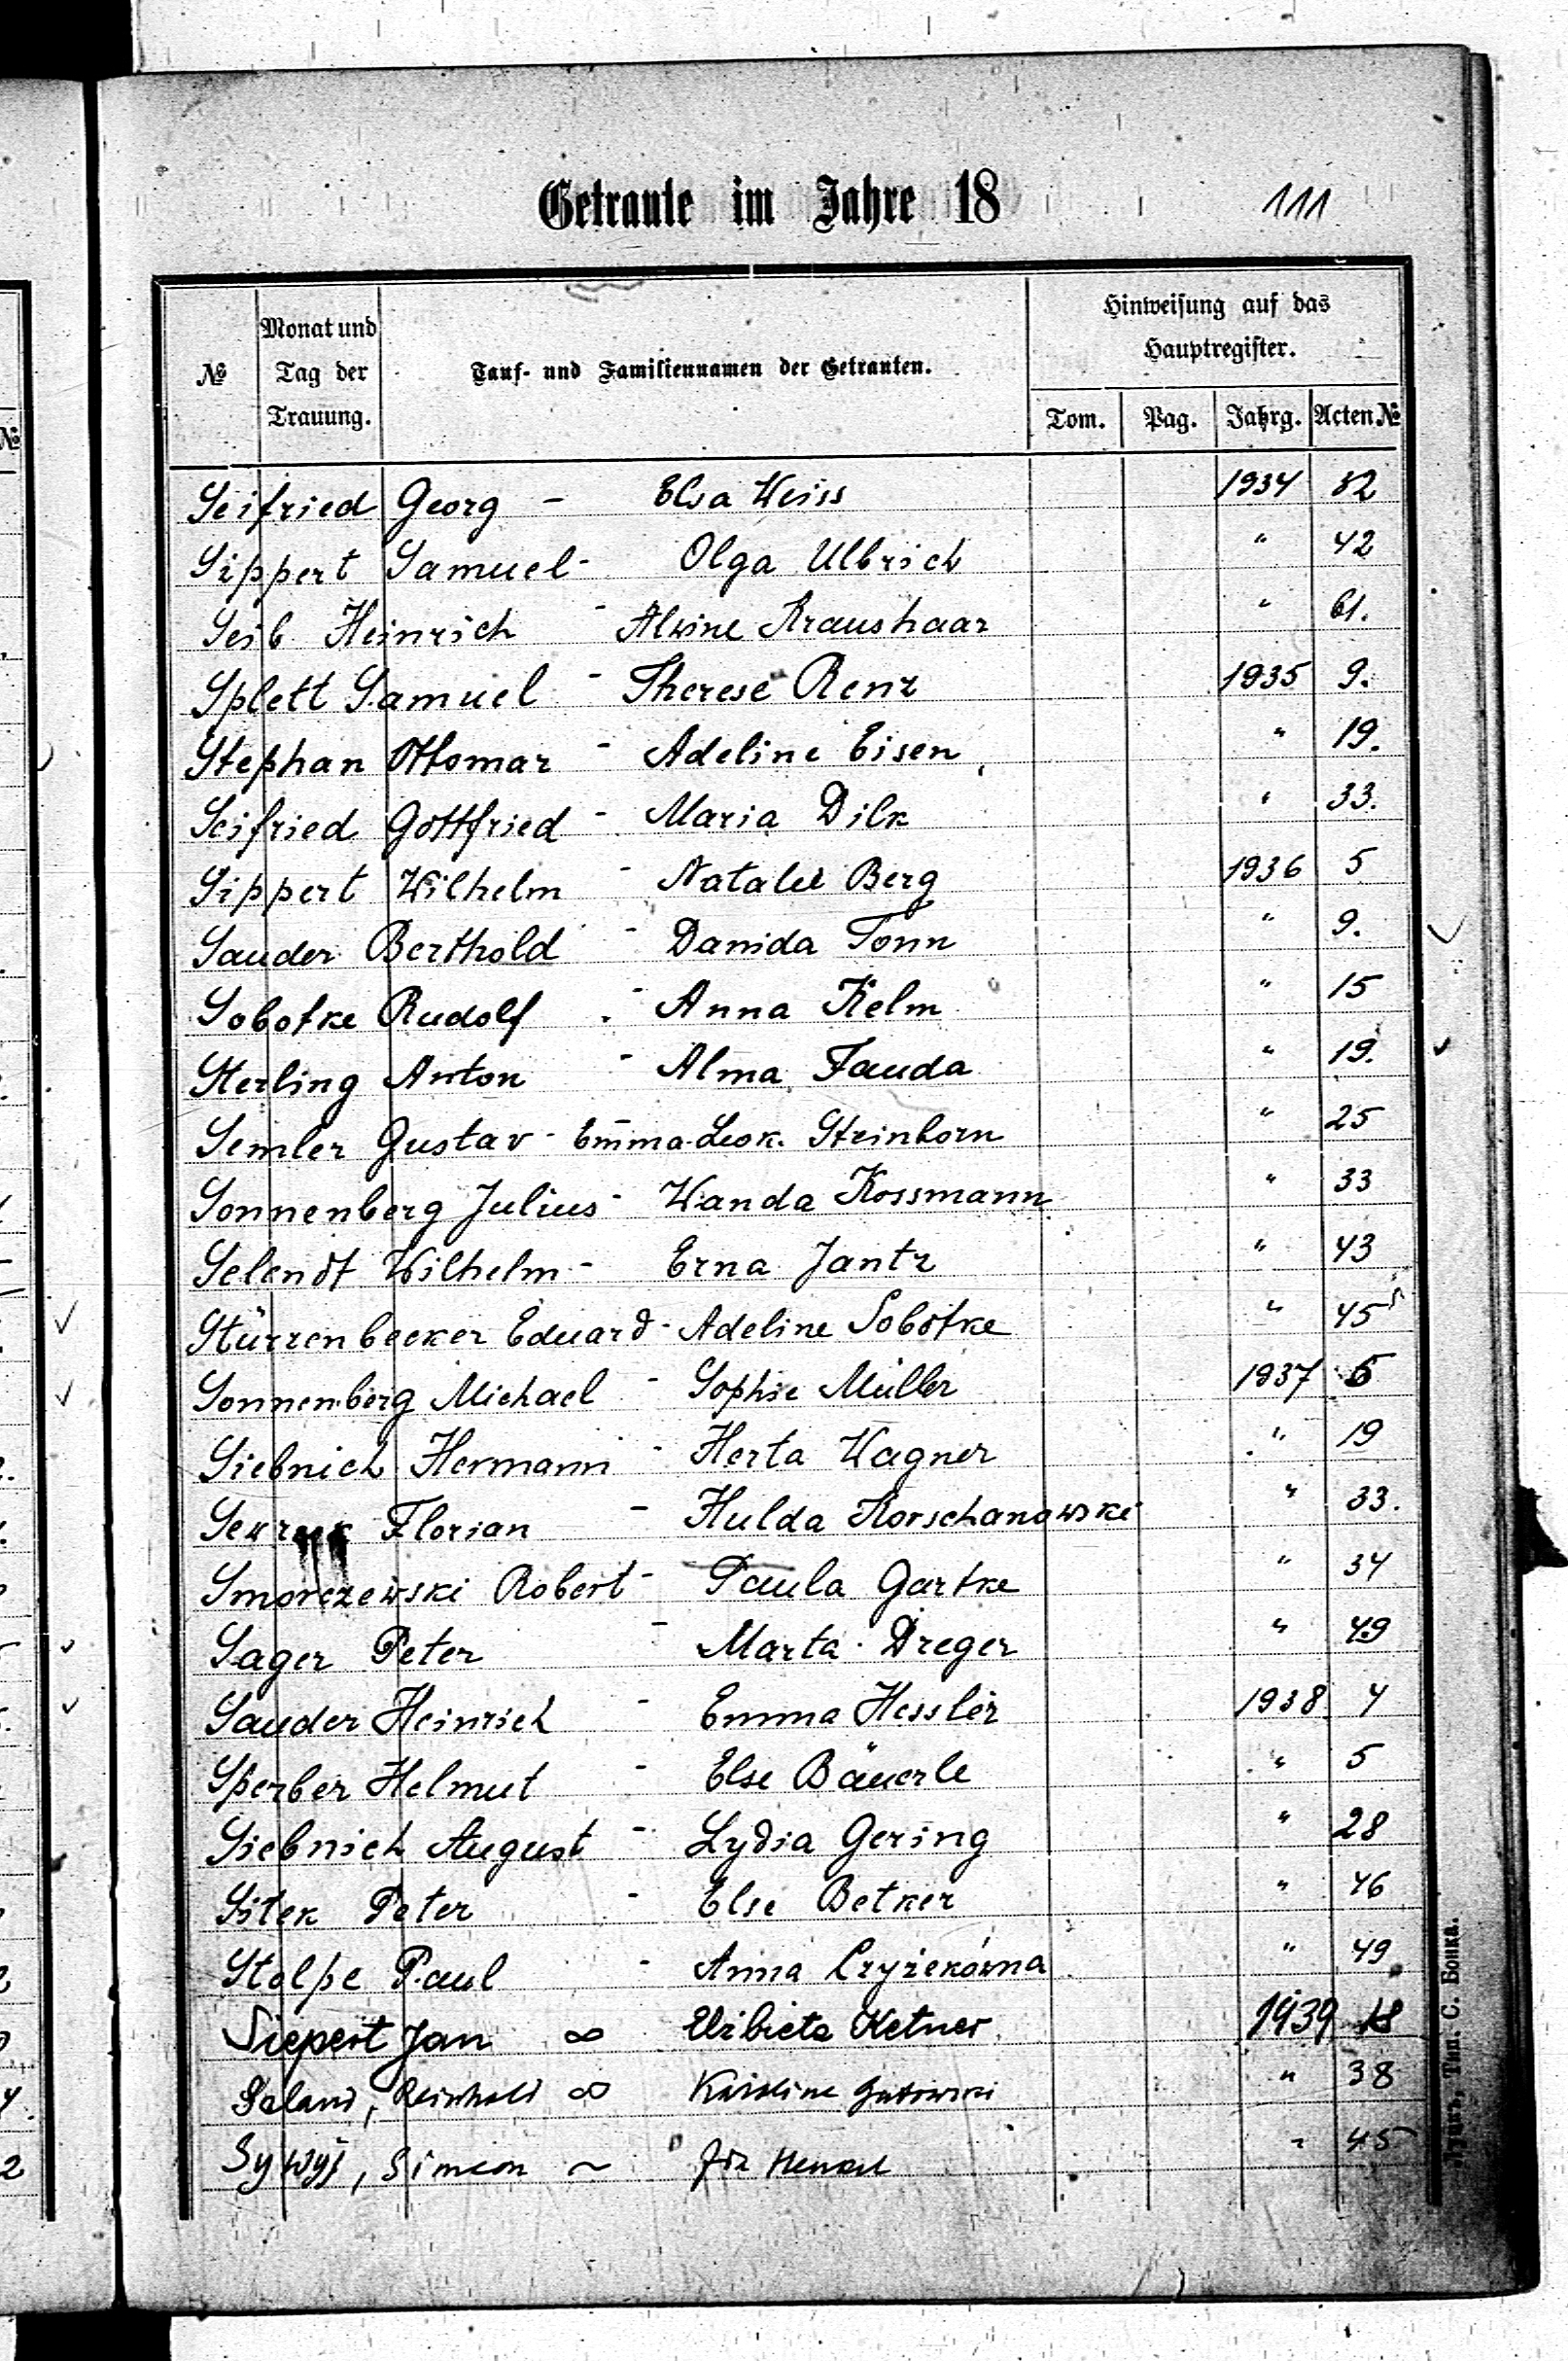 Getraute im Jahre 18
111
№
Monat und Tag der Trauung.
Tauf- und Familiennamen der Getrauten.
Hinweisung auf das Hauptregister.
Tom. Pag. Jahrg. Acten №
Seifried Georg - Elsa Weiss 1934 82
Sippert Samuel - Olga Ulbrich " 42
Seib Heinrich - Alwine Kraushaar " 61.
Splett Samuel - Therese Renz 1935 9.
Stephan Ottomar - Adeline Eisen " 19.
Seifried Gottfried - Maria Dilk " 33.
Sippert Wilhelm - Natalie Berg 1936 5
Sauder Berthold - Danida Tonn " 9.
Sobotke Rudolf - Anna Kelm " 15
Sterling Anton - Alma Fauda " 19.
Semler Gustav - Emma-Leok. Steinborn " 25
Sonnenberg Julius - Wanda Kossmann " 33
Selendt Wilhelm - Erna Jantz " 43
Stürrenbecker Eduard - Adeline Sobotke " 45
Sonnenberg Michael - Sophie Müller 1937 5
Siebnich Hermann - Herta Wagner " 19
Florian - Hulda Korschanowski " 33.
Smorczewski Robert - Paula Gartke " 34
Sager Peter - Marta Dreger " 49
Sauder Heinrich - Emma Hessler 1938 4
Sperber Helmut - Else Bäuerle " 5
Siebnich August - Lydia Gering " 28
Sitek Peter - Else Betker " 46
Stolpe Paul - Anna " 49
Siepert Jan ∞ Elżbieta Ketner 1939
Reinhold ∞ " 38
Sywyj, Simeon ~ " 45
Тип. С. Бонка.